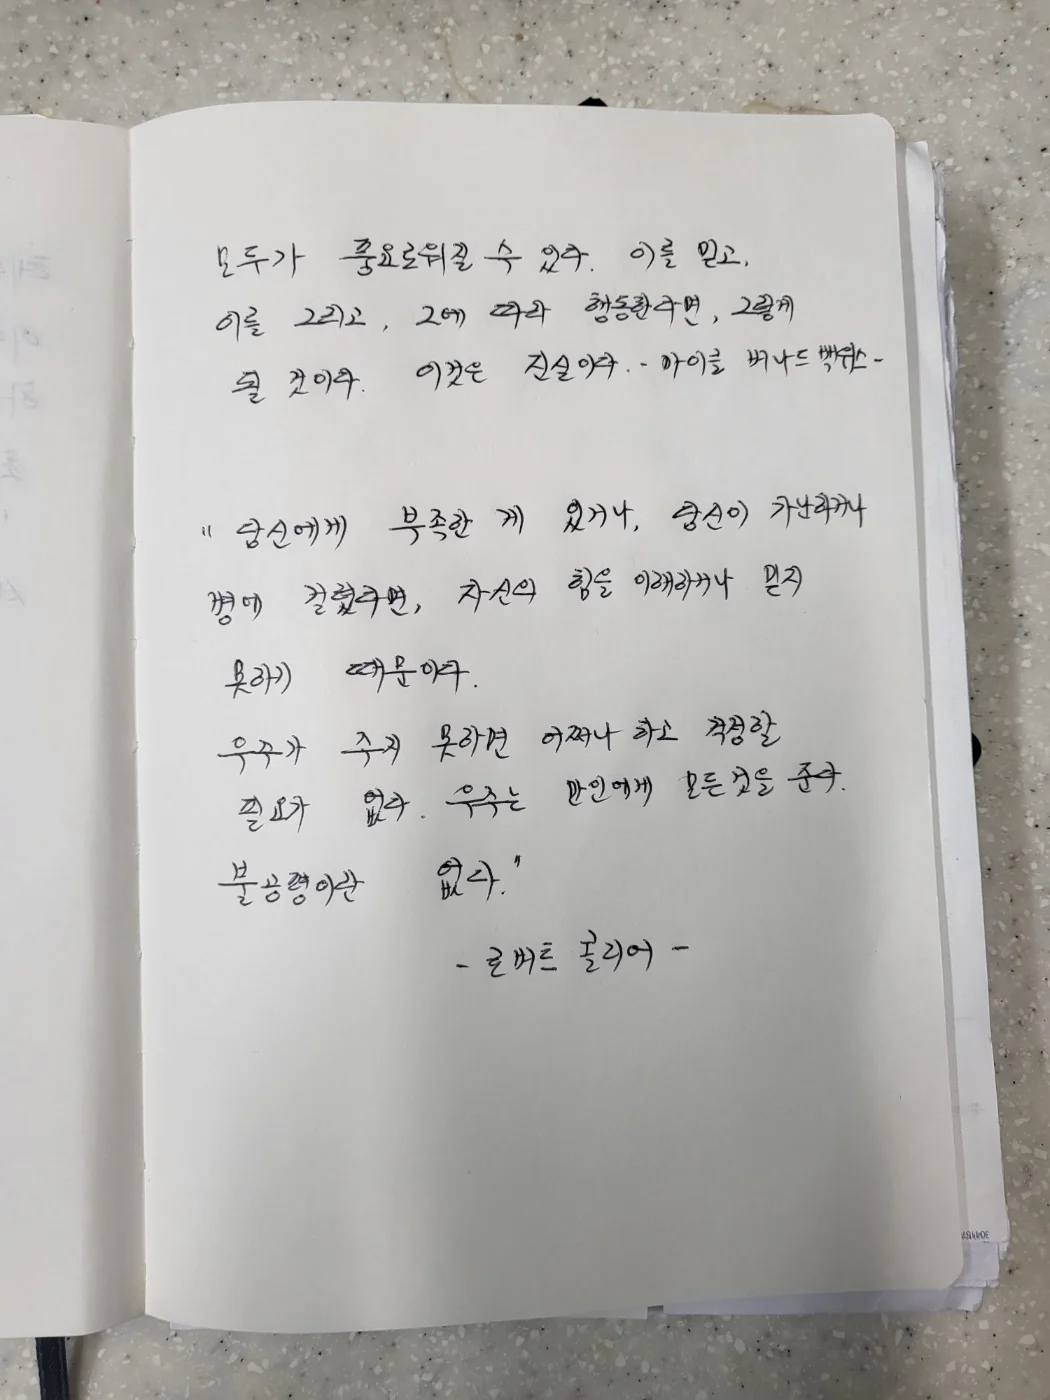 모두가 풍요로워질 수 있다. 이를 믿고,
이를 그리고, 그에 따라 행동한다면, 그렇게
될 것이다. 이것은 진실이다. - 마이클 버나드 백위스 -
" 당신에게 부족한 게 있거나, 당신이 가난하거나
병에 걸렸다면, 자신의 힘을 이해하거나 믿지
못하기 때문이다.
우주가 주지 못하면 어쩌나 하고 걱정할
필요가 없다. 우주는 만인에게 모든것을 준다.
불공평이란 없다."
- 로버트 콜리어 -